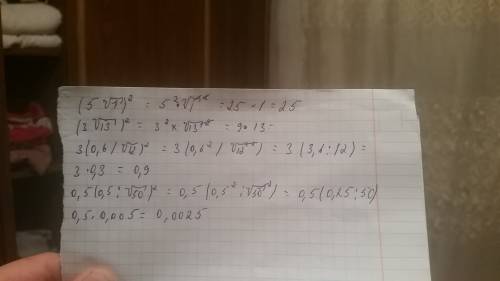 (5√1)² = 5²·√1² = 25 · 1 = 25
(3√13)² = 3² × √13² = 9·13 =
3(0,6/√12)² = 3(0,6²/√12²) = 3(3,6:12) =
3·0,3 = 0,9
0,5(0,5:√50)² = 0,5(0,5²:√50²) = 0,5(0,25:50)
0,5·0,005 = 0,0025